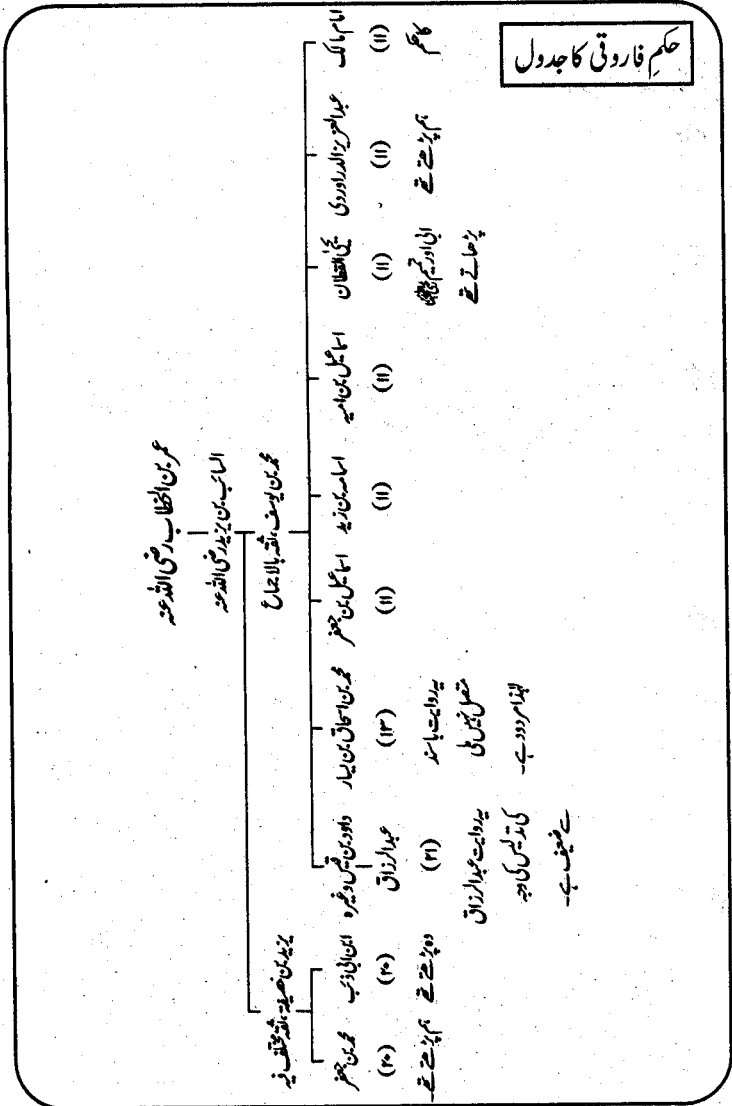 حکمِ فاروقی کا جدول
عمر بن الخطاب رضی اللہ عنہ
السائب بن یزید رضی اللہ عنہ
محمد بن یوسف، ثقہ بالاجماع
یزید بن خصیفہ، ثقہ مختلف فیہ
امام مالک
(۱۱)
کا حکم
عبدالعزیز الدراوردی
(۱۱)
ہم پڑھتے تھے
یحییٰ القطان
(۱۱)
ابی اور تمیم رضی اللہ عنہما
پڑھاتے تھے
اسماعیل بن امیہ
(۱۱)
اسامہ بن زید
(۱۱)
اسماعیل بن جعفر
(۱۱)
محمد بن اسحاق بن یسار
(۱۳)
یہ روایت باسند
متصل نہیں ملی
لہٰذا مردود ہے۔
داود بن قیس وغیرہ
عبدالرزاق
(۲۱)
یہ روایت عبدالرزاق
کی تدلیس کی وجہ
سے ضعیف ہے۔
ابن ابی ذئب
(۲۰)
وہ پڑھتے تھے
محمد بن جعفر
(۲۰)
ہم پڑھتے تھے۔